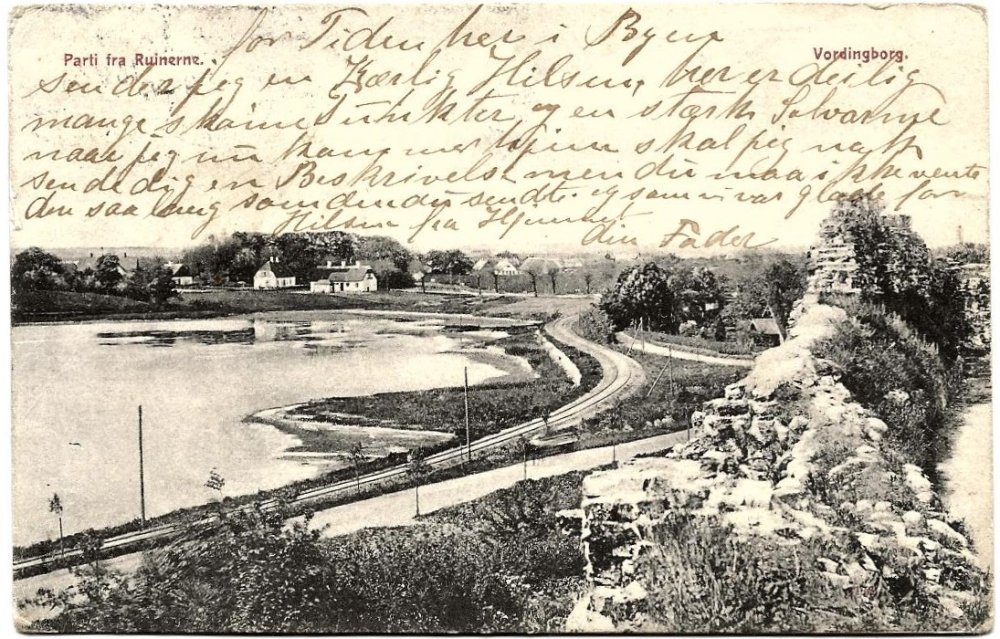 Parti fra Ruinerne.
Vordingborg.
for Tiden her i Byen
sender jeg en Kærlig Hilsen, her er deilig
mange skønne Punkter og en stærk Solvarme
naar jeg nu kommer hjem skal jeg nok
sende dig en Beskrivelse men du maa ikke vente
den saa lang som den du sendte og som vi var glade for
Hilsen fra Hjemmet
din Fader